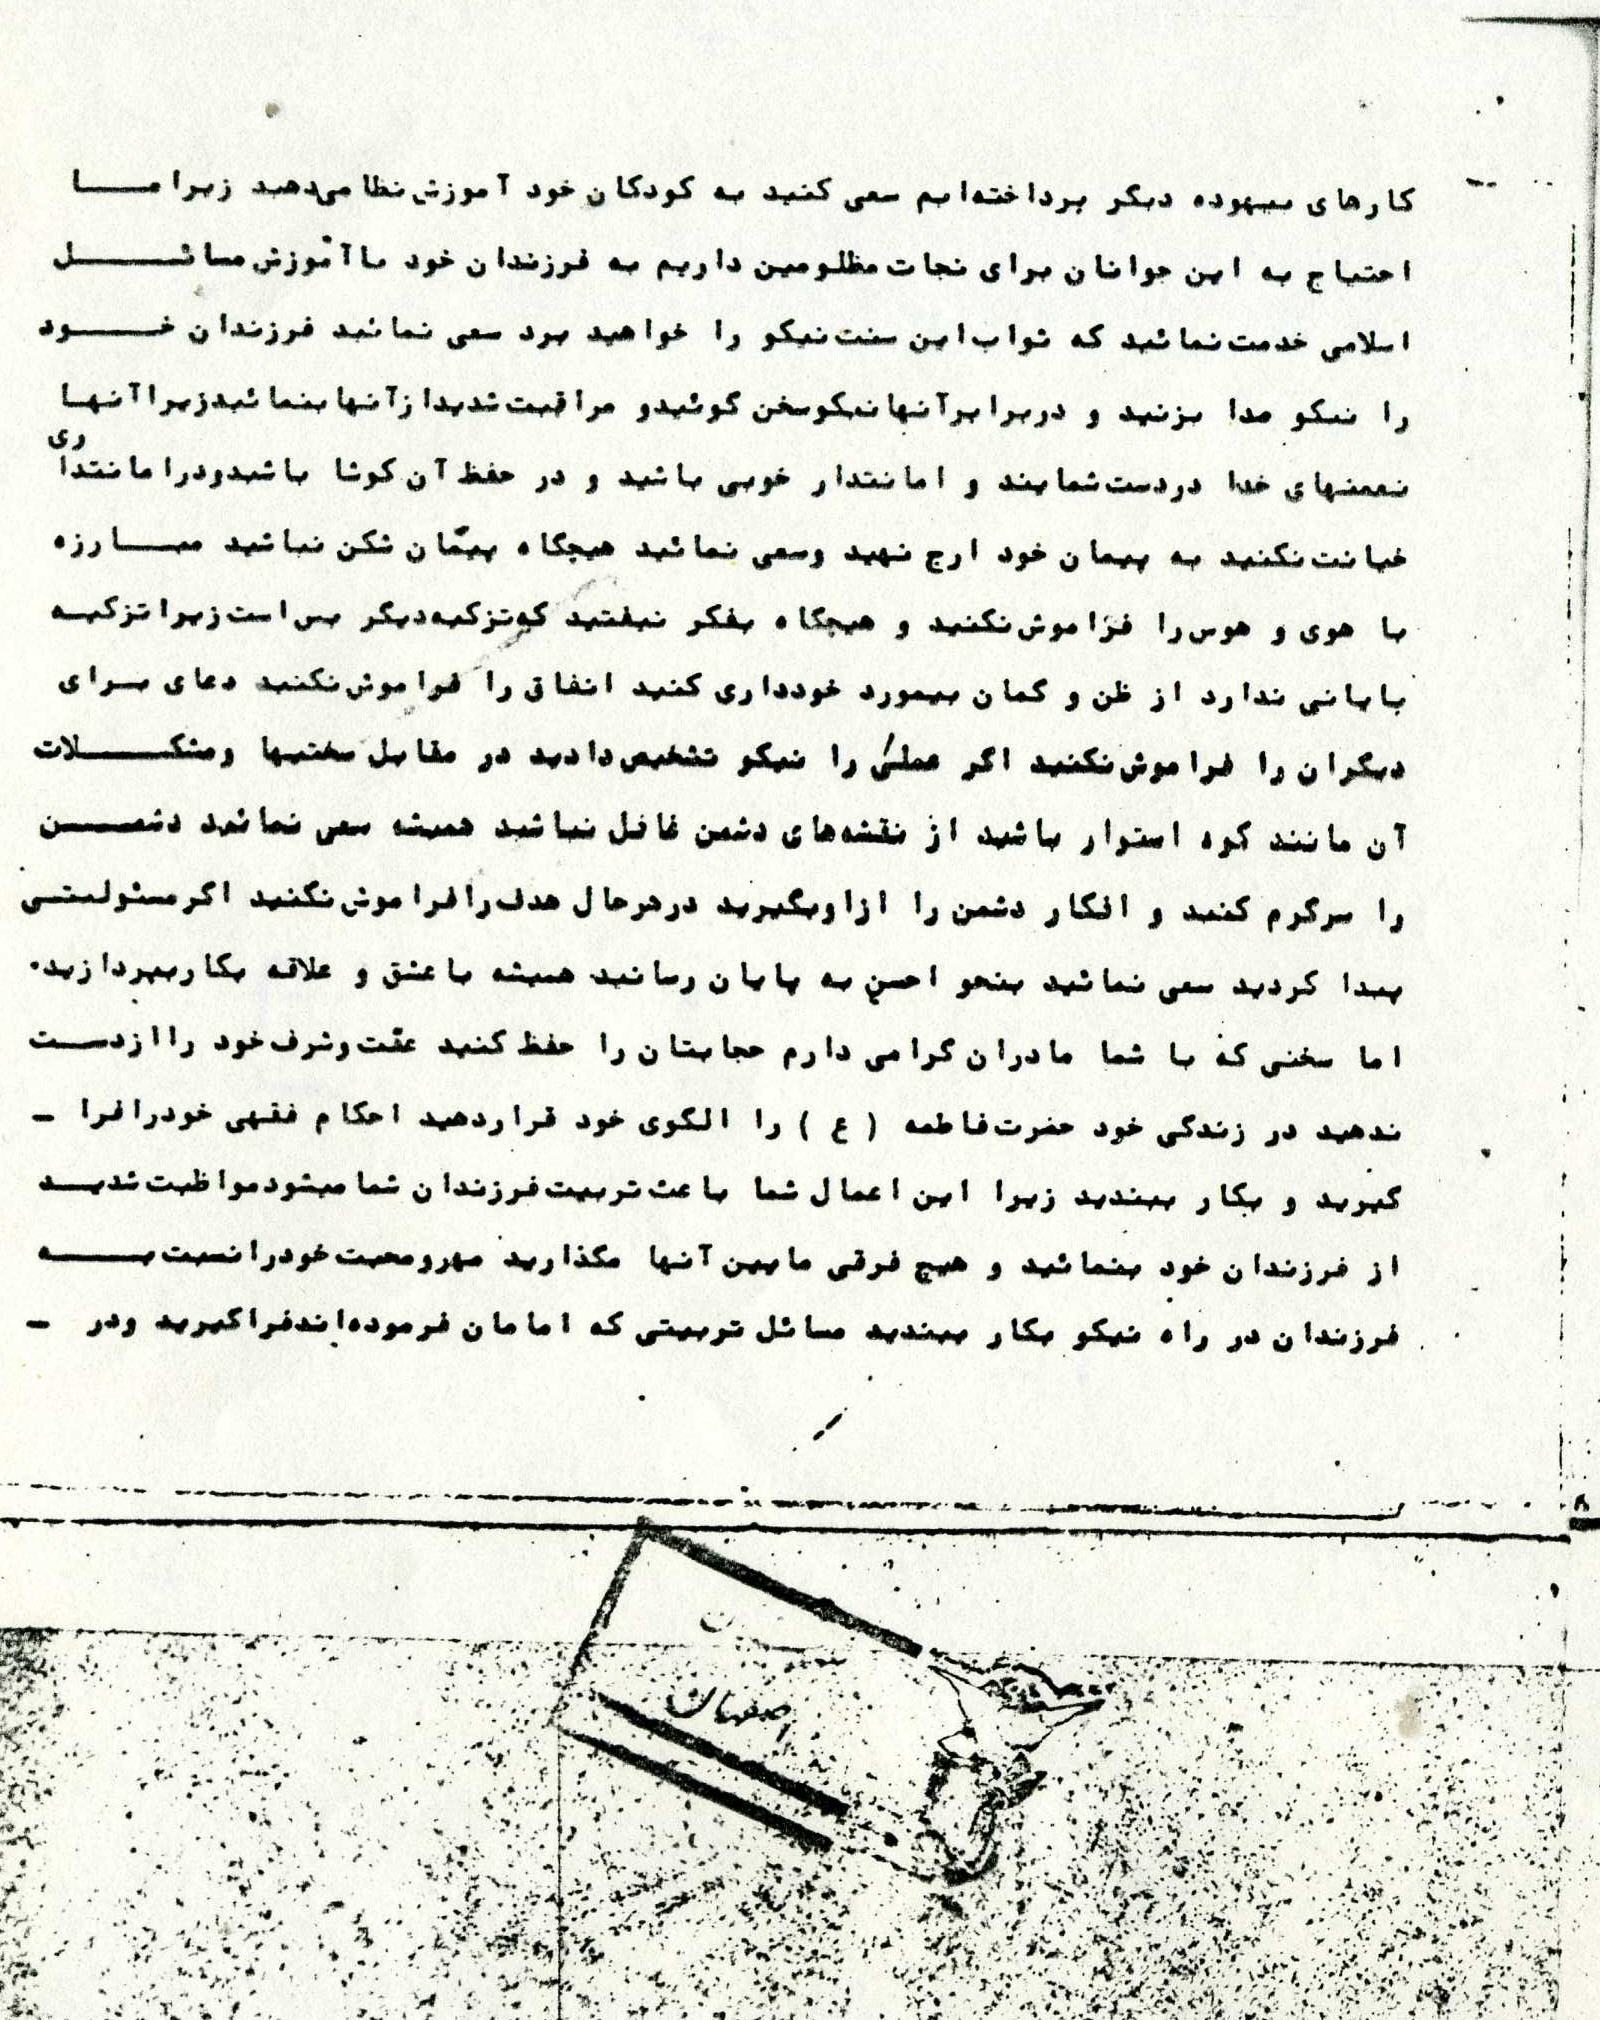 کارهای بیهوده دیگر پرداخته‌ایم سعی کنید به کودکان خود آموزش نظامی‌دهید زیرا ما
احتیاج به این جوانان برای نجات مظلومین داریم به فرزندان خود با آموزش مسائل
اسلامی خدمت نمائید که ثواب این سنت نیکو را خواهید برد سعی نمائید فرزندان خود
را نیکو صدا بزنید و در برابر آنها نیکو سخن گوئید و مراقبت شدید از آنها بنمائید زیرا آنها
نعمتهای خدا در دست شمایند و امانتدار خوبی باشید و در حفظ آن کوشا باشید و در امانتداری
خیانت نکنید به پیمان خود ارج نهید وسعی نمائید هیچگاه پیمان شکن نباشید مبارزه
با هوی و هوس را فراموش نکنید و هیچگاه بفکر نیفتید که تزکیه دیگر بس است زیرا تزکیه
پایانی ندارد از ظن و گمان بیمورد خودداری کنید انفاق را فراموش نکنید دعای برای
دیگران را فراموش نکنید اگر عملی را نیکو تشخیص دادید در مقابل سختیها ومشکلات
آن مانند کوه استوار باشید از نقشه‌های دشمن غافل نباشید همیشه سعی نمائید دشمن
را سرگرم کنید و افکار دشمن را از او بگیرید در هر حال هدف را فراموش نکنید اگر مسئولیتی
پیدا کردید سعی نمائید بنحو احسن به پایان رسانید همیشه با عشق و علاقه بکار بپردازید.
اما سخنی که با شما مادران گرامی دارم حجابتان را حفظ کنید عفّت و شرف خود را از دست
ندهید در زندگی خود حضرت فاطمه ( ع ) را الگوی خود قرار دهید احکام فقهی خود را فرا -
گیرید و بکار ببندید زیرا این اعمال شما باعث تربیت فرزندان شما میشود مواظبت شدید
از فرزندان خود بنمائید و هیچ فرقی مابین آنها مگذارید مهر و محبت خود را نسبت به
فرزندان در راه نیکو بکار ببندید مسائل تربیتی که امامان فرموده‌اند فرا گیرید ودر -
اصفهان